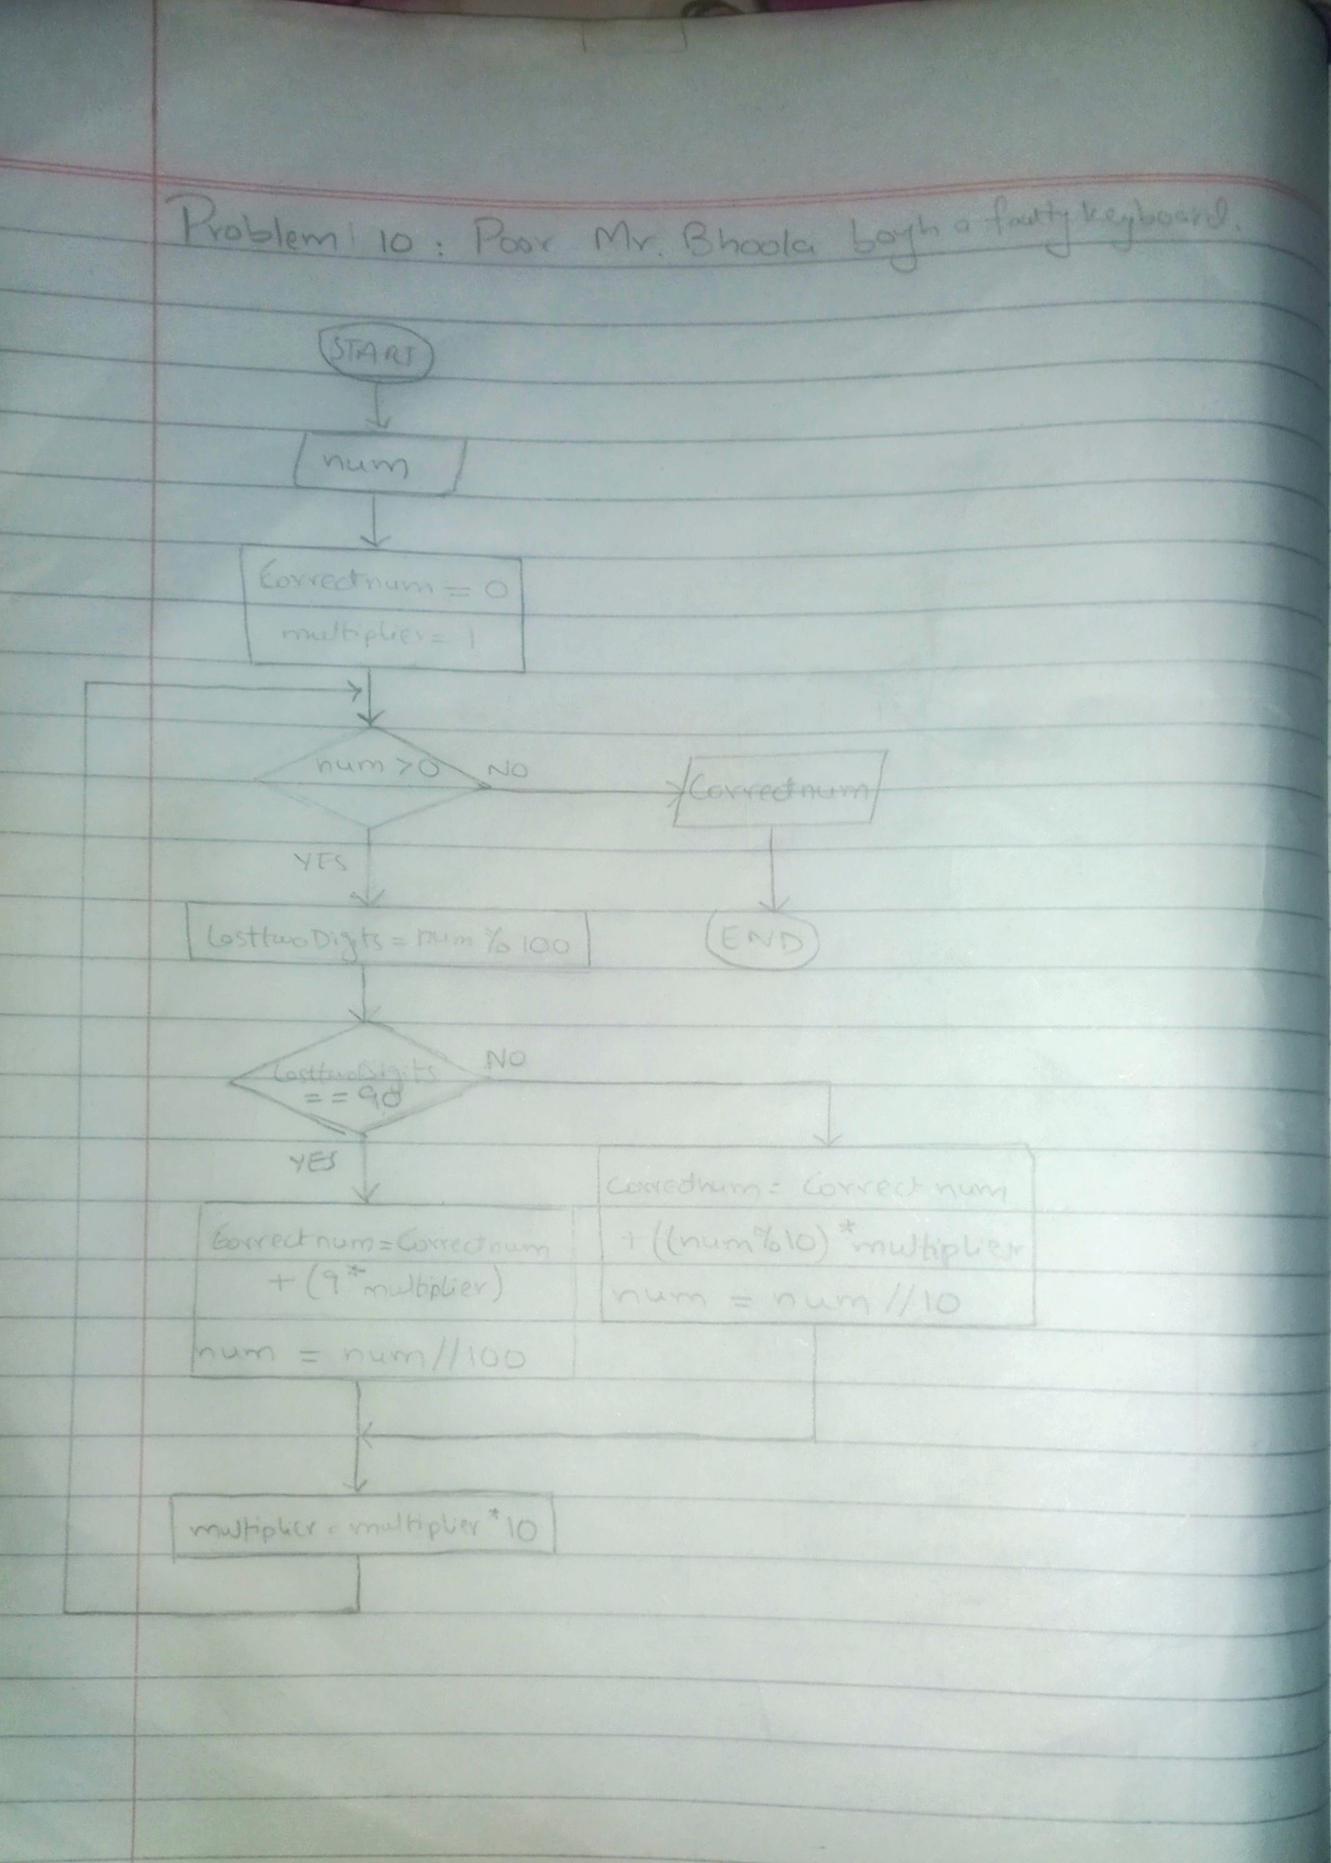 Problem 10: Poor Mr. Bhoola boygh a faulty keyboard.
START
num
Correctnum = 0
multiplier = 1
num > 0
NO
Correctnum
YES
LasttwoDigts = num % 100
END
LasttwoDigits
== 98
NO
YES
Correctnum = Correct num
+ ((num%10) * multiplier
num = num // 10
Correct num = Correctnum
+ (9 * multiplier)
num = num // 100
multiplier = multiplier * 10